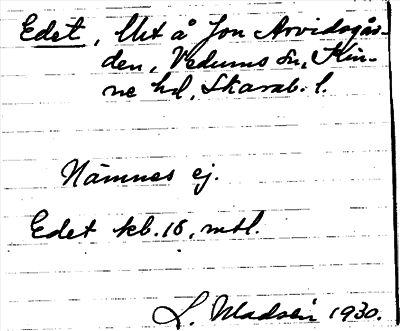 Edet, lht å Jon Arvidsgår-
den, Vedums sn, Kin-
ne hd, Skarab. l.
Nämnes ej.
Edet kb. 18, mtl.
L. Madsén 1930.